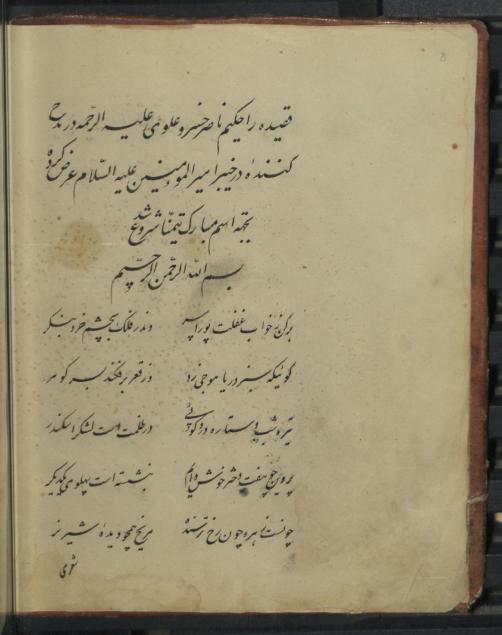 قصیده را حکیم ناصر خسرو علوی علیه الرّحمه در مدح
کنندهٔ در خیبر امیر المومنین علیه السّلام عرض کرده
بجهة اسم مبارک تیمّنا شروع شد
بسم اللّه الرّحمن الرّحیم
برکن ز خواب غفلت پورا سر واندر فلک بچشم خرد بنکر
کوئیکه سبز دریا موجی زد وز قعر برفکند بسر کوهر
تیره شب و ستاره درو کوئی در ظلمت است لشکر اسکندر
پروین چو هفت دختر خوش دایم بنشسته است پهلوی یکدیکر
چونست زهره چون رخ ترسنده مریخ همچو دیدهٔ شیر نر